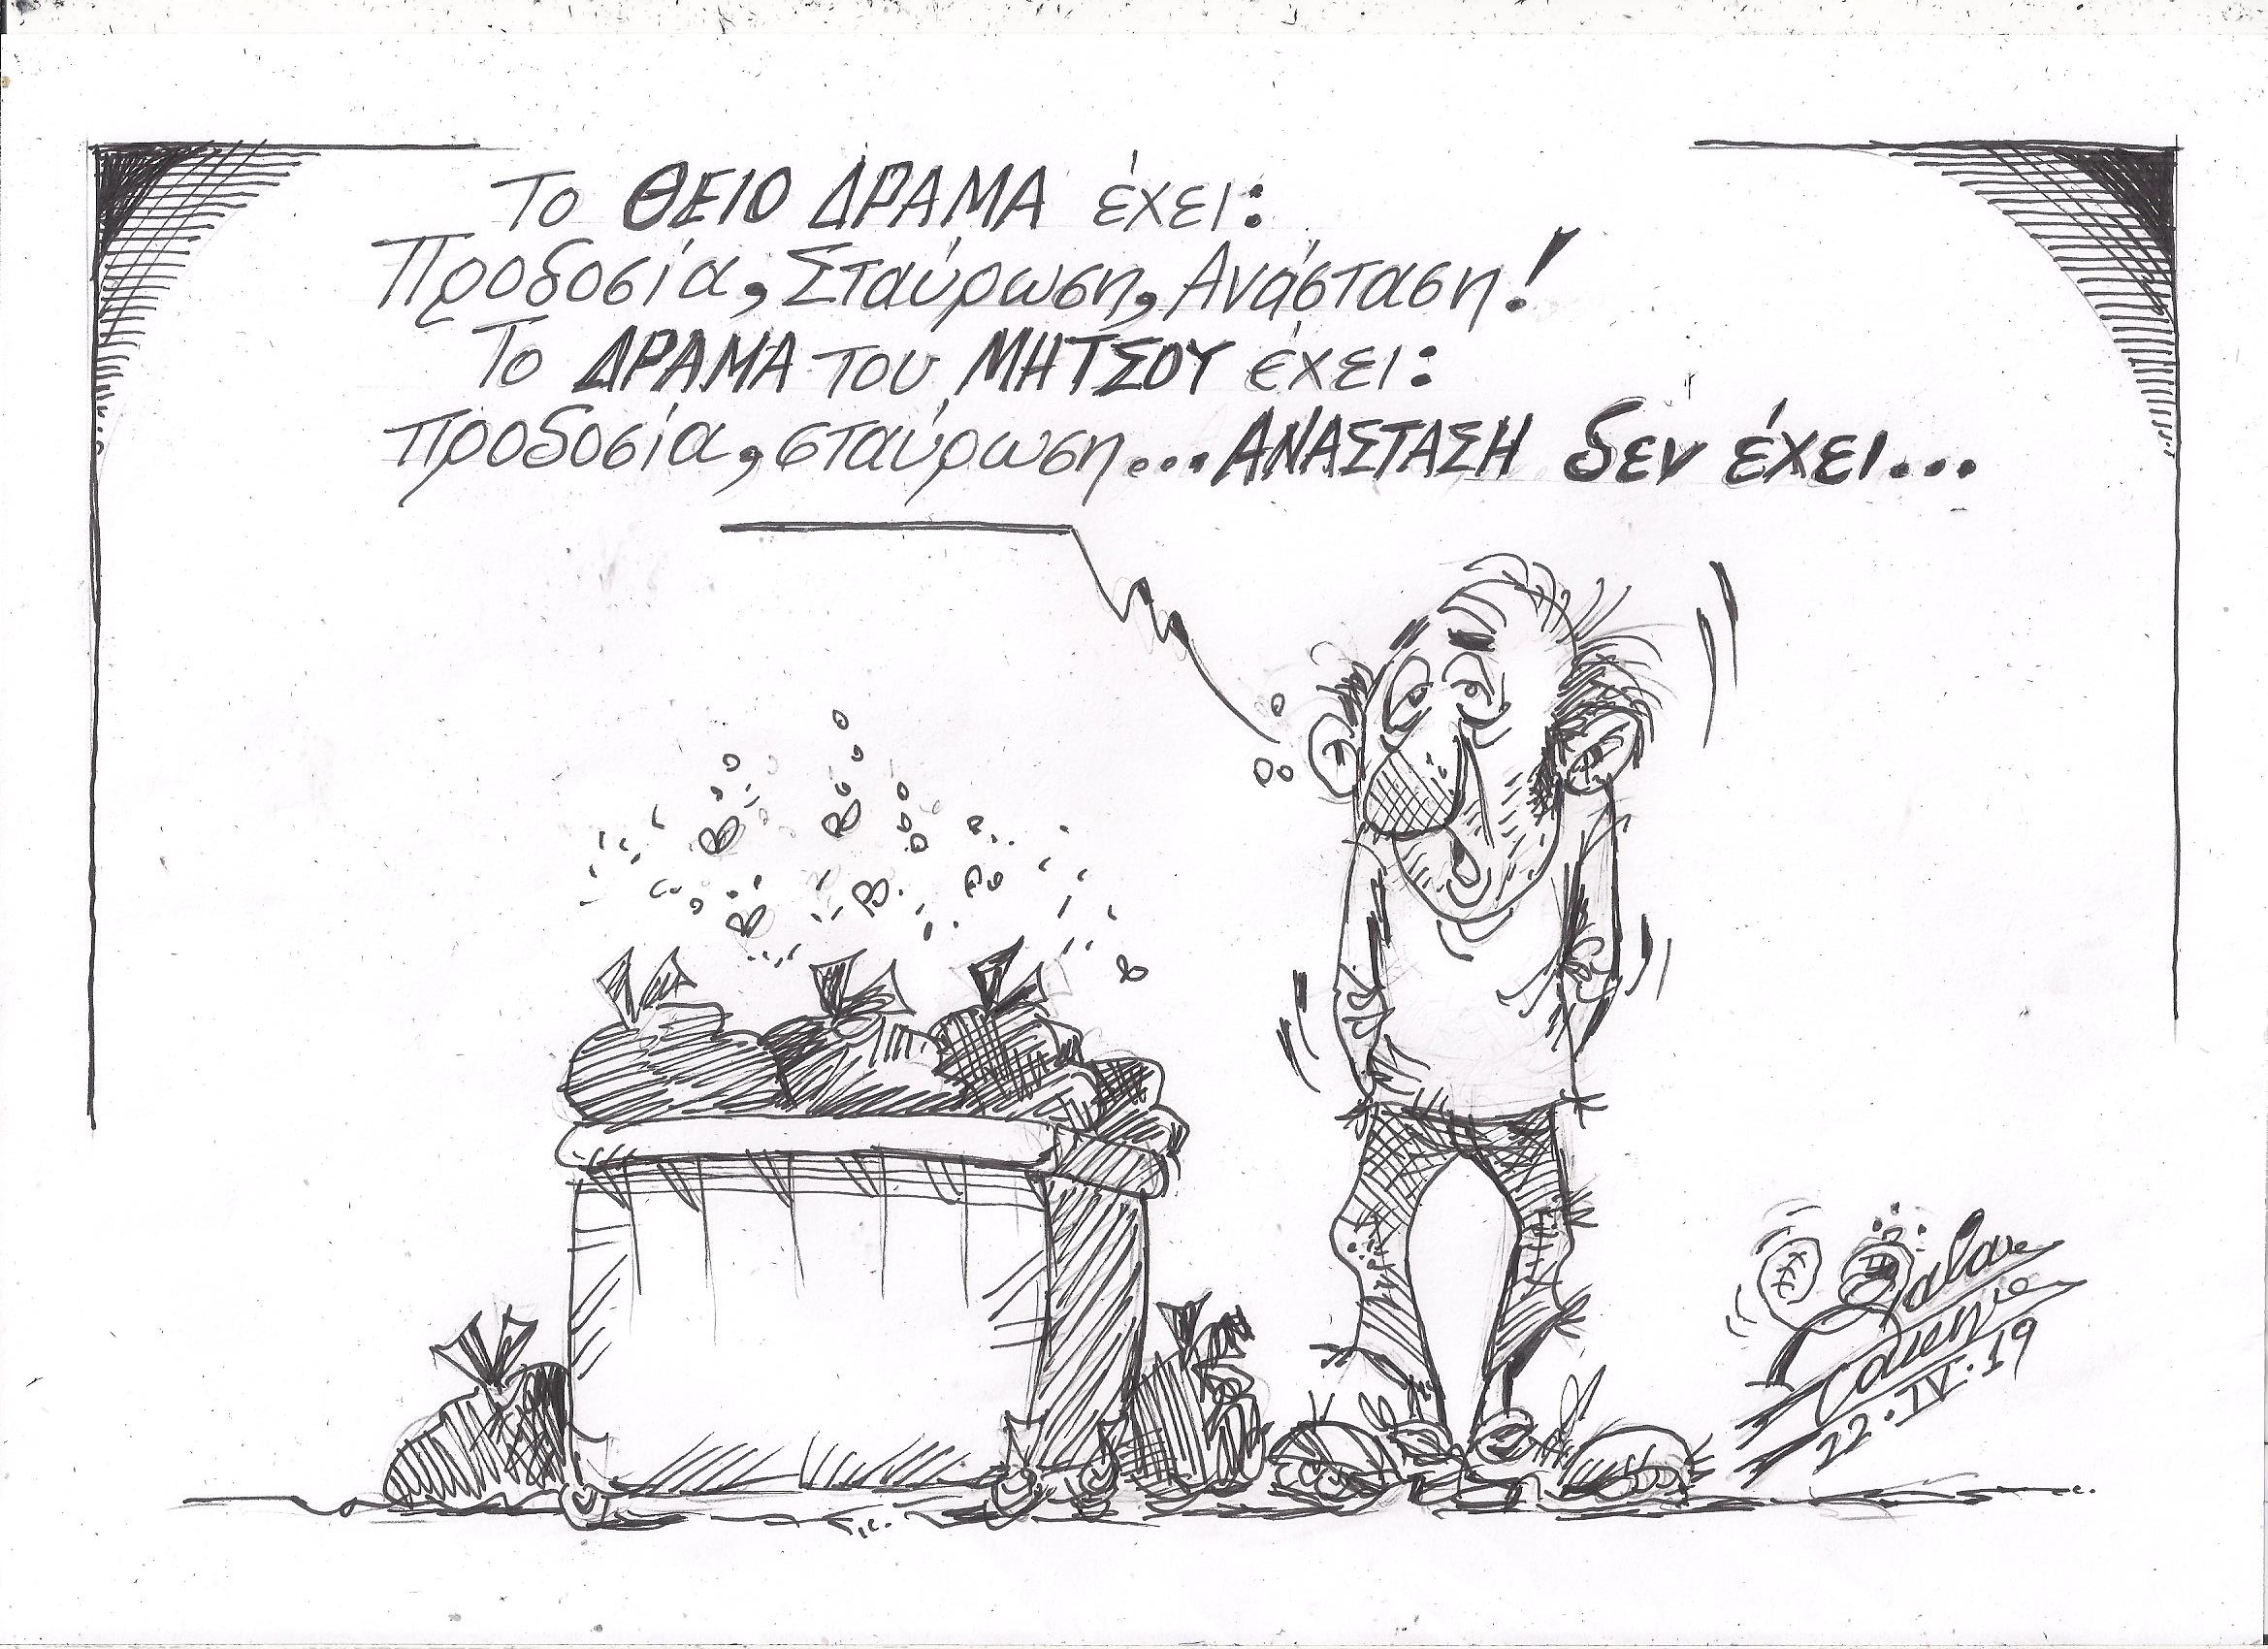 Το ΘΕΙΟ ΔΡΑΜΑ έχει:
Προδοσία, Σταύρωση, Ανάσταση!
Το ΔΡΑΜΑ του ΜΗΤΣΟΥ έχει:
προδοσία, σταύρωση...ΑΝΑΣΤΑΣΗ δεν έχει...
22·IV·19